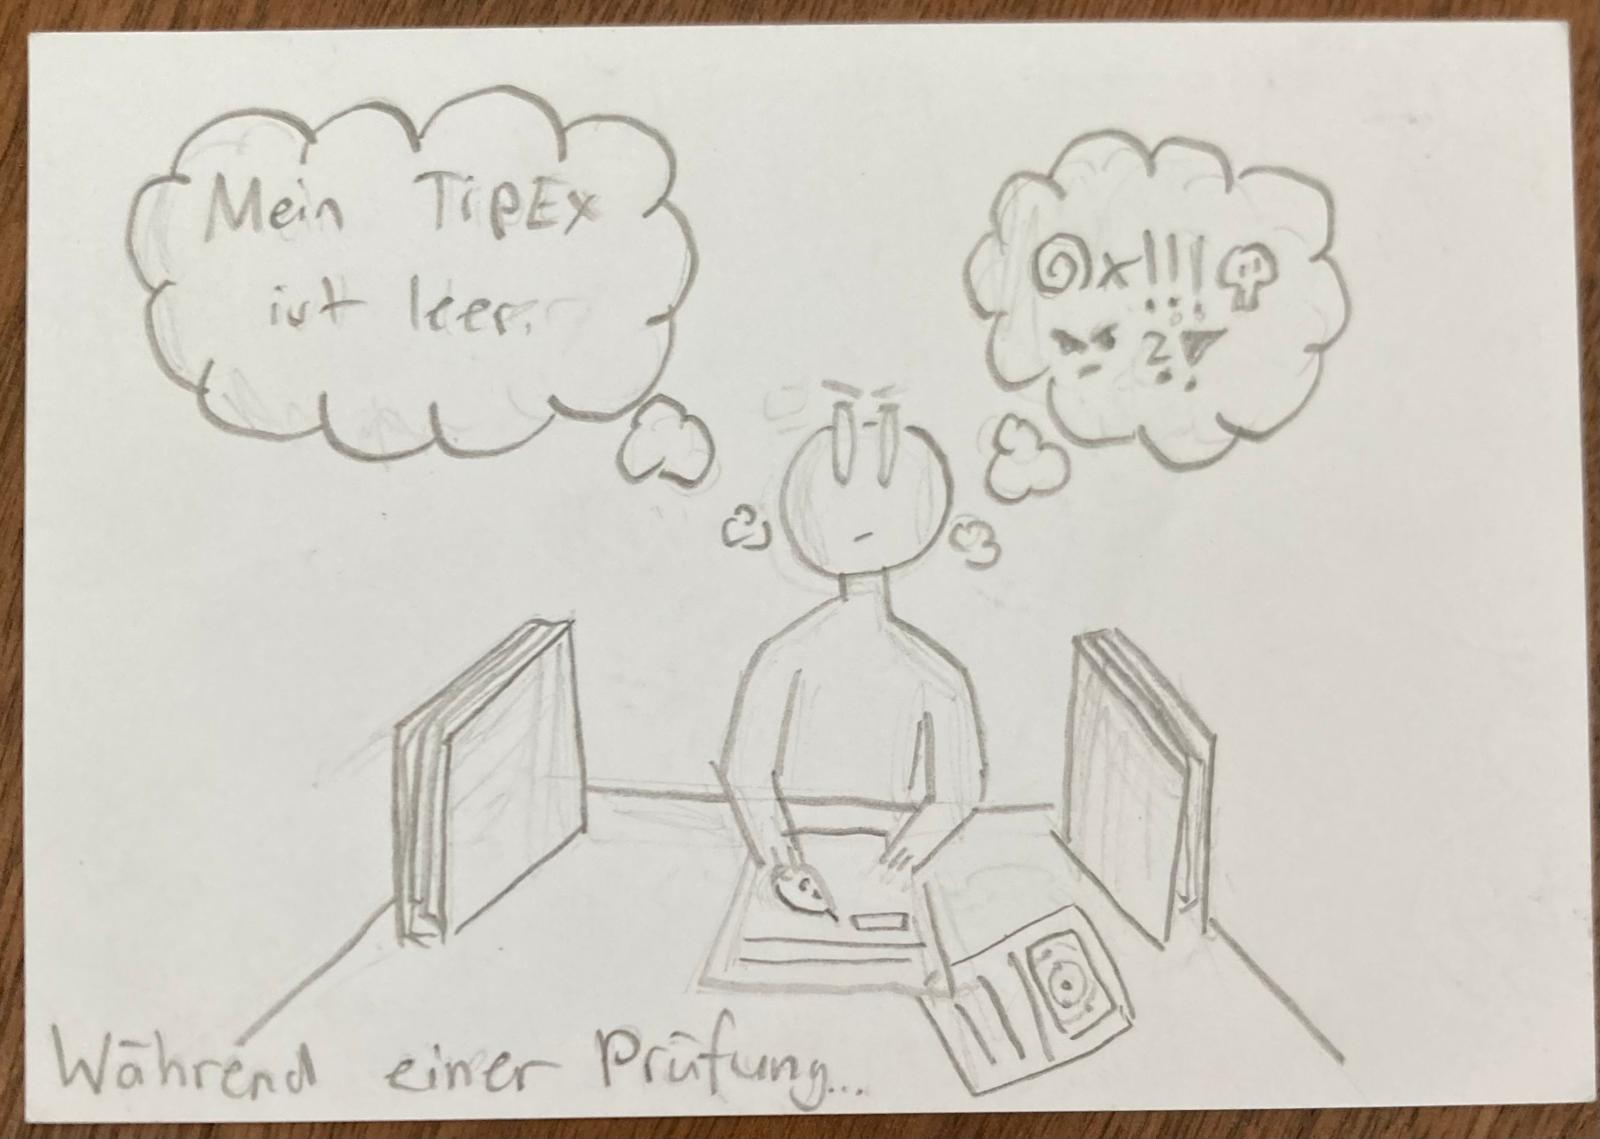 Mein TipEx
ist leer.
@x!!!
2
Während einer Prüfung...